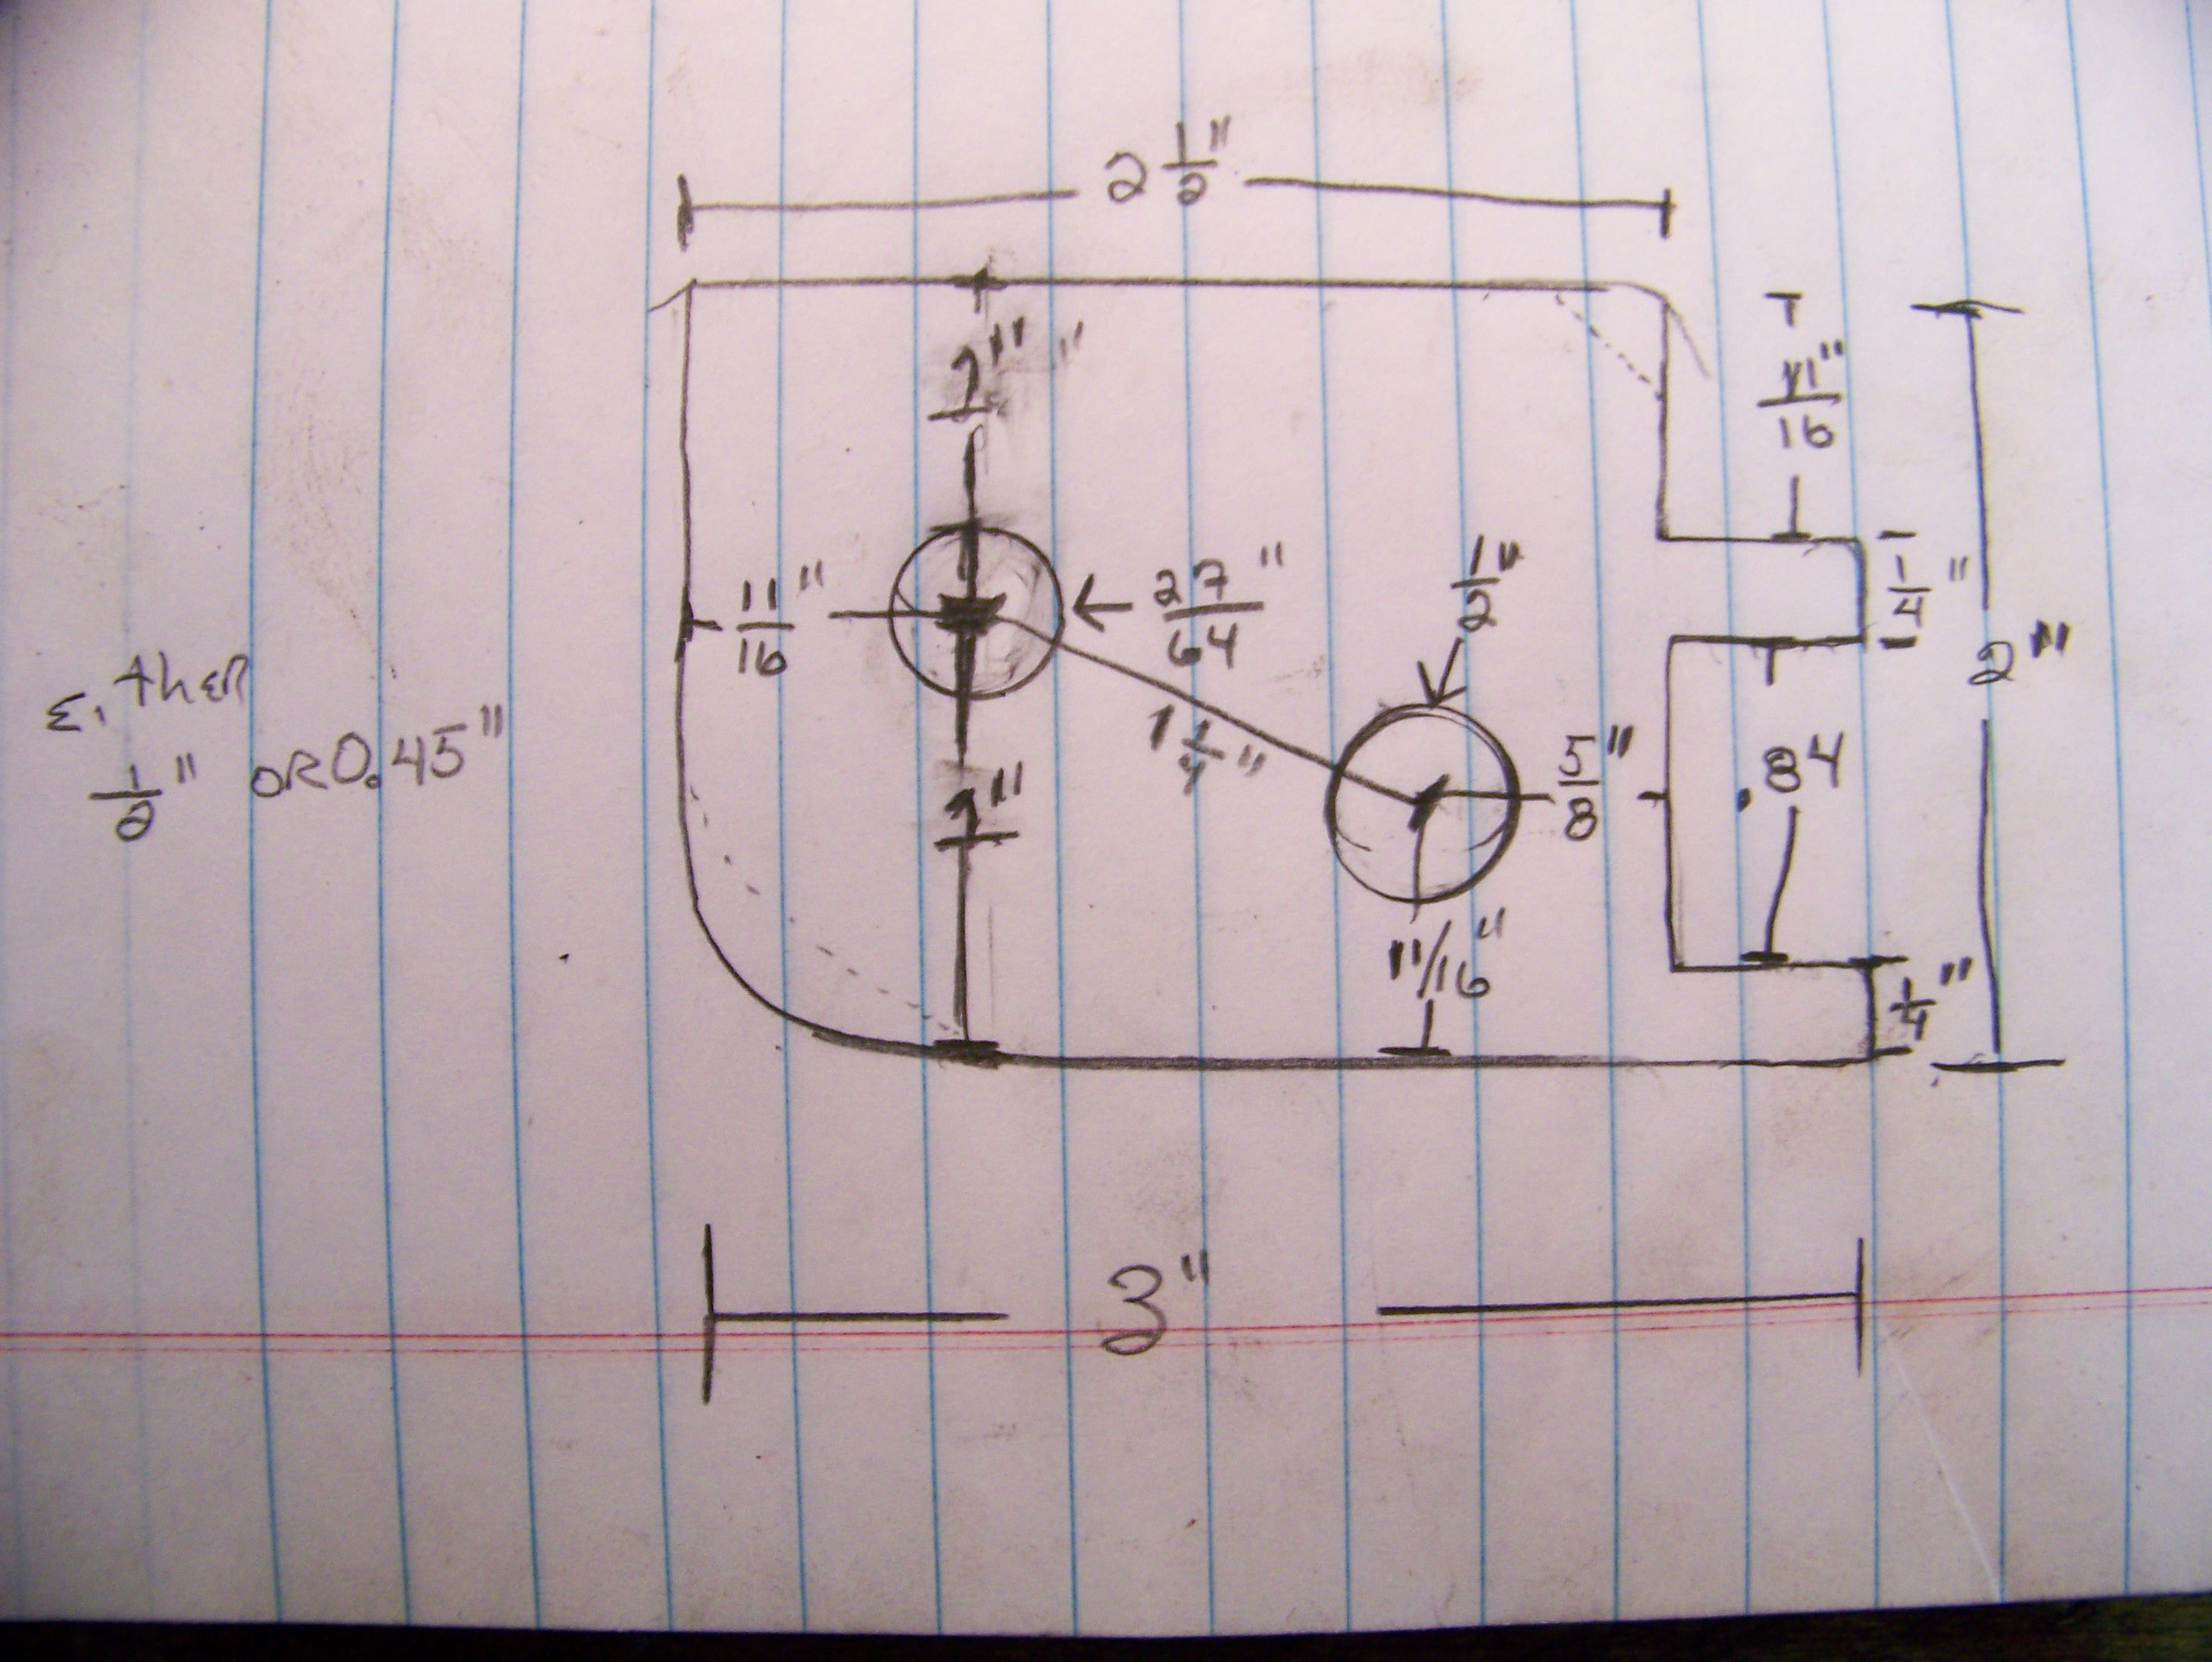 2 1/2"
1"
11/16"
11/16"
27/64"
1/2"
1/4"
2"
Either
1/2" OR 0.45"
1 1/4"
5/8"
.84
1"
11/16"
1/4"
3"